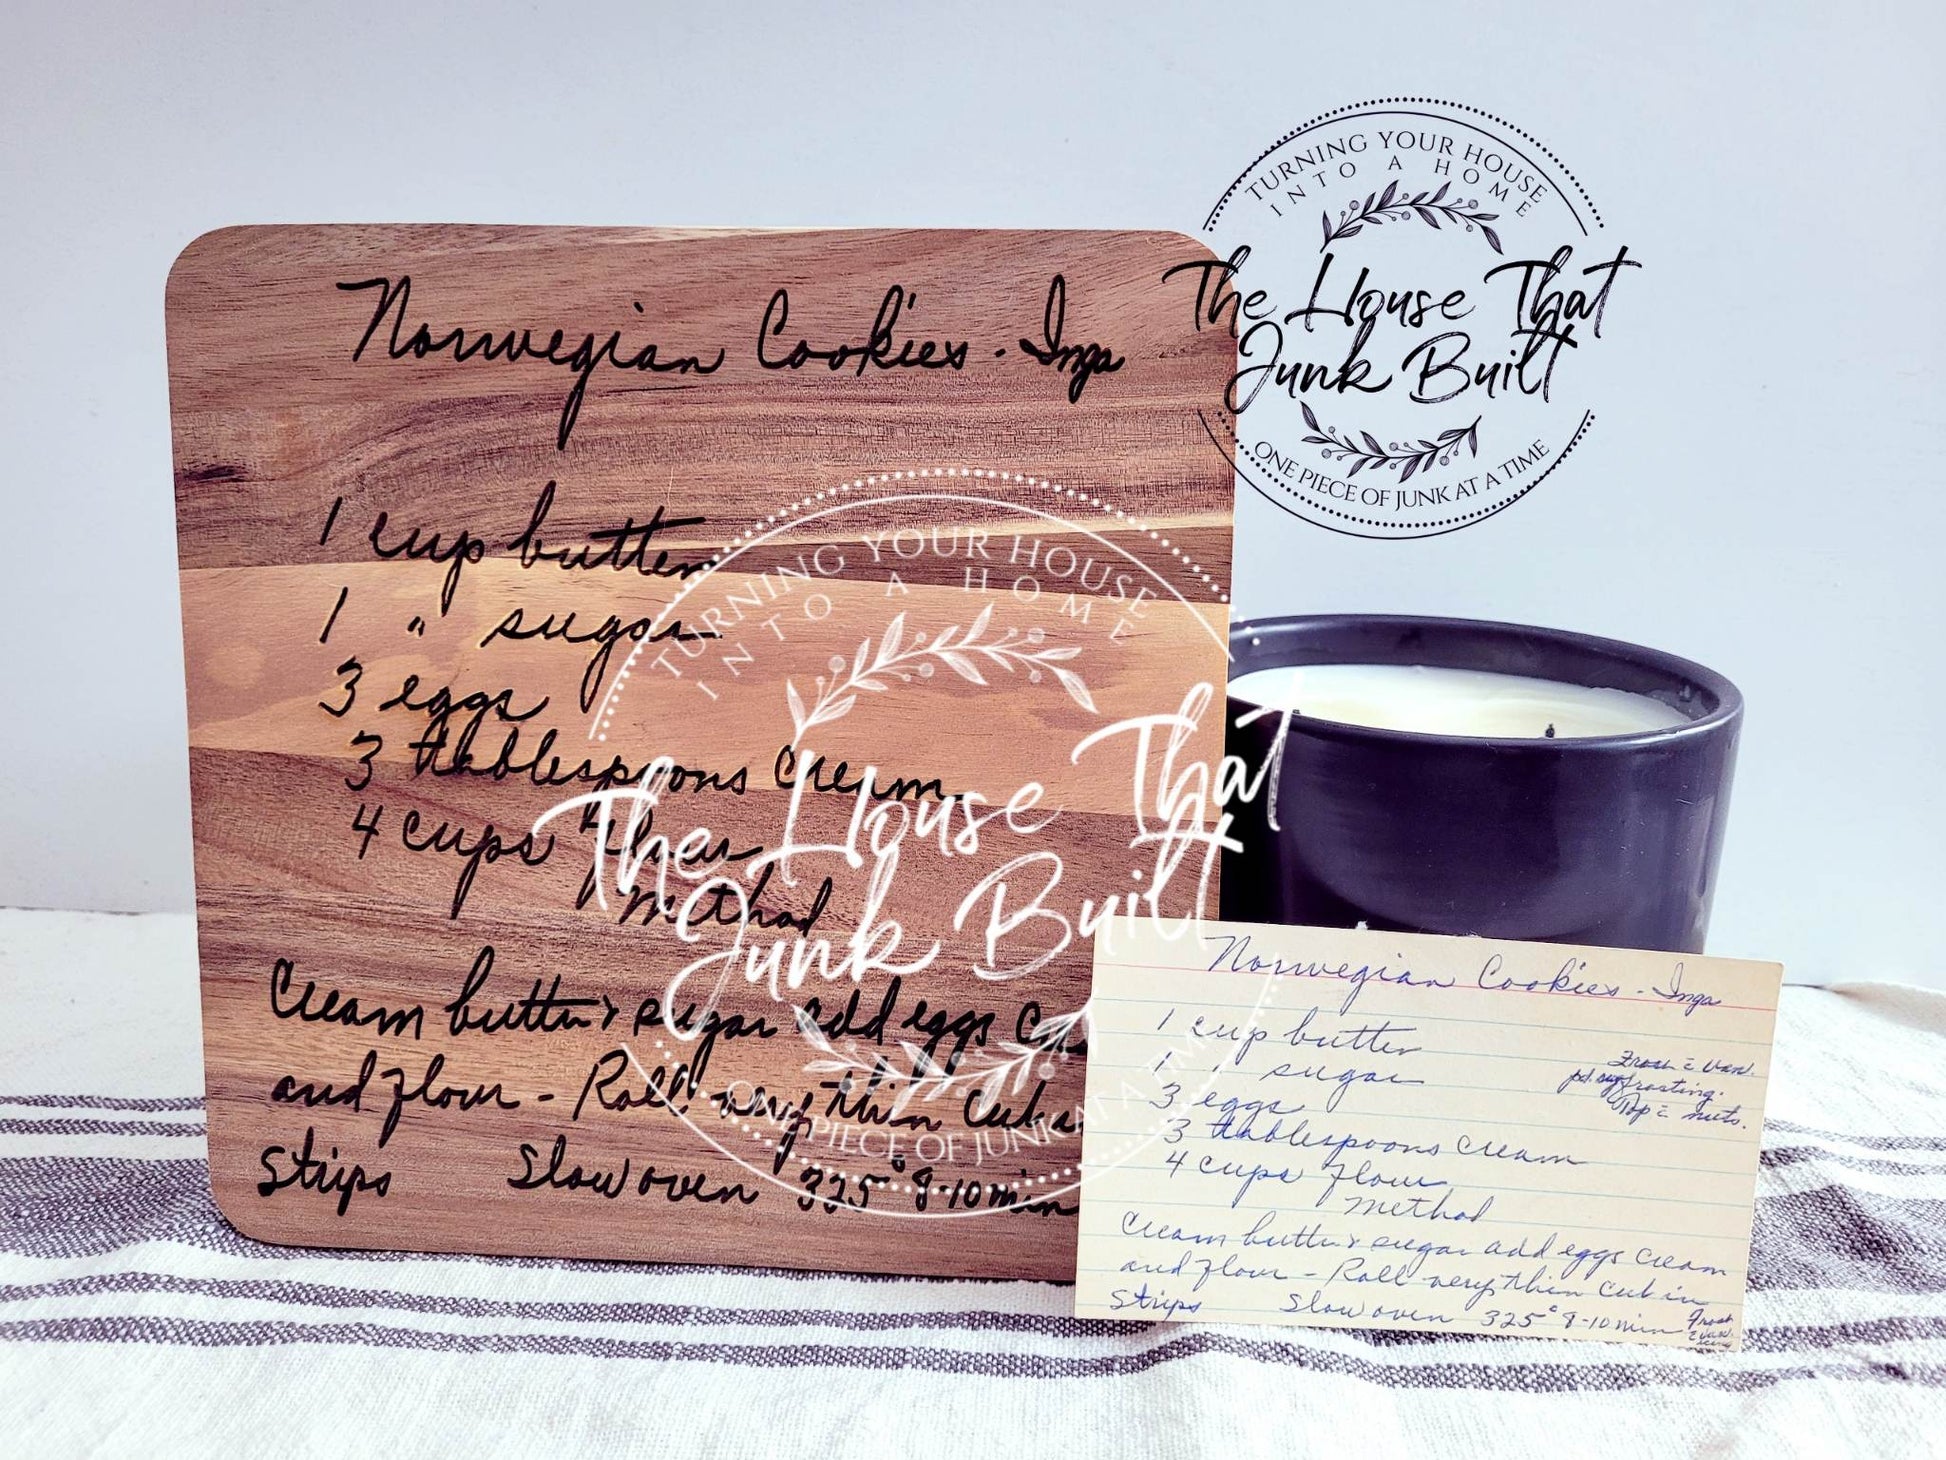 Norwegian Cookies - Inga
1 cup butter
1 " sugar
3 eggs
3 tablespoons cream
4 cups flour
Method
Cream butter & sugar add eggs
and flour - Roll very thin cut
Strips Slow oven 325° 8-10 min
TURNING YOUR HOUSE
INTO A HOME
The House That
Junk Built
ONE PIECE OF JUNK AT A TIME
TURNING YOUR HOUSE
INTO A HOME
The House That
Junk Built
ONE PIECE OF JUNK AT A TIME
Norwegian Cookies - Inga
1 cup butter
1 " sugar
3 eggs
3 tablespoons cream
4 cups flour
Method
Cream butter & sugar add eggs cream
and flour - Roll very thin cut in
Strips Slow oven 325° 8-10 min
frosting.
Top nuts.